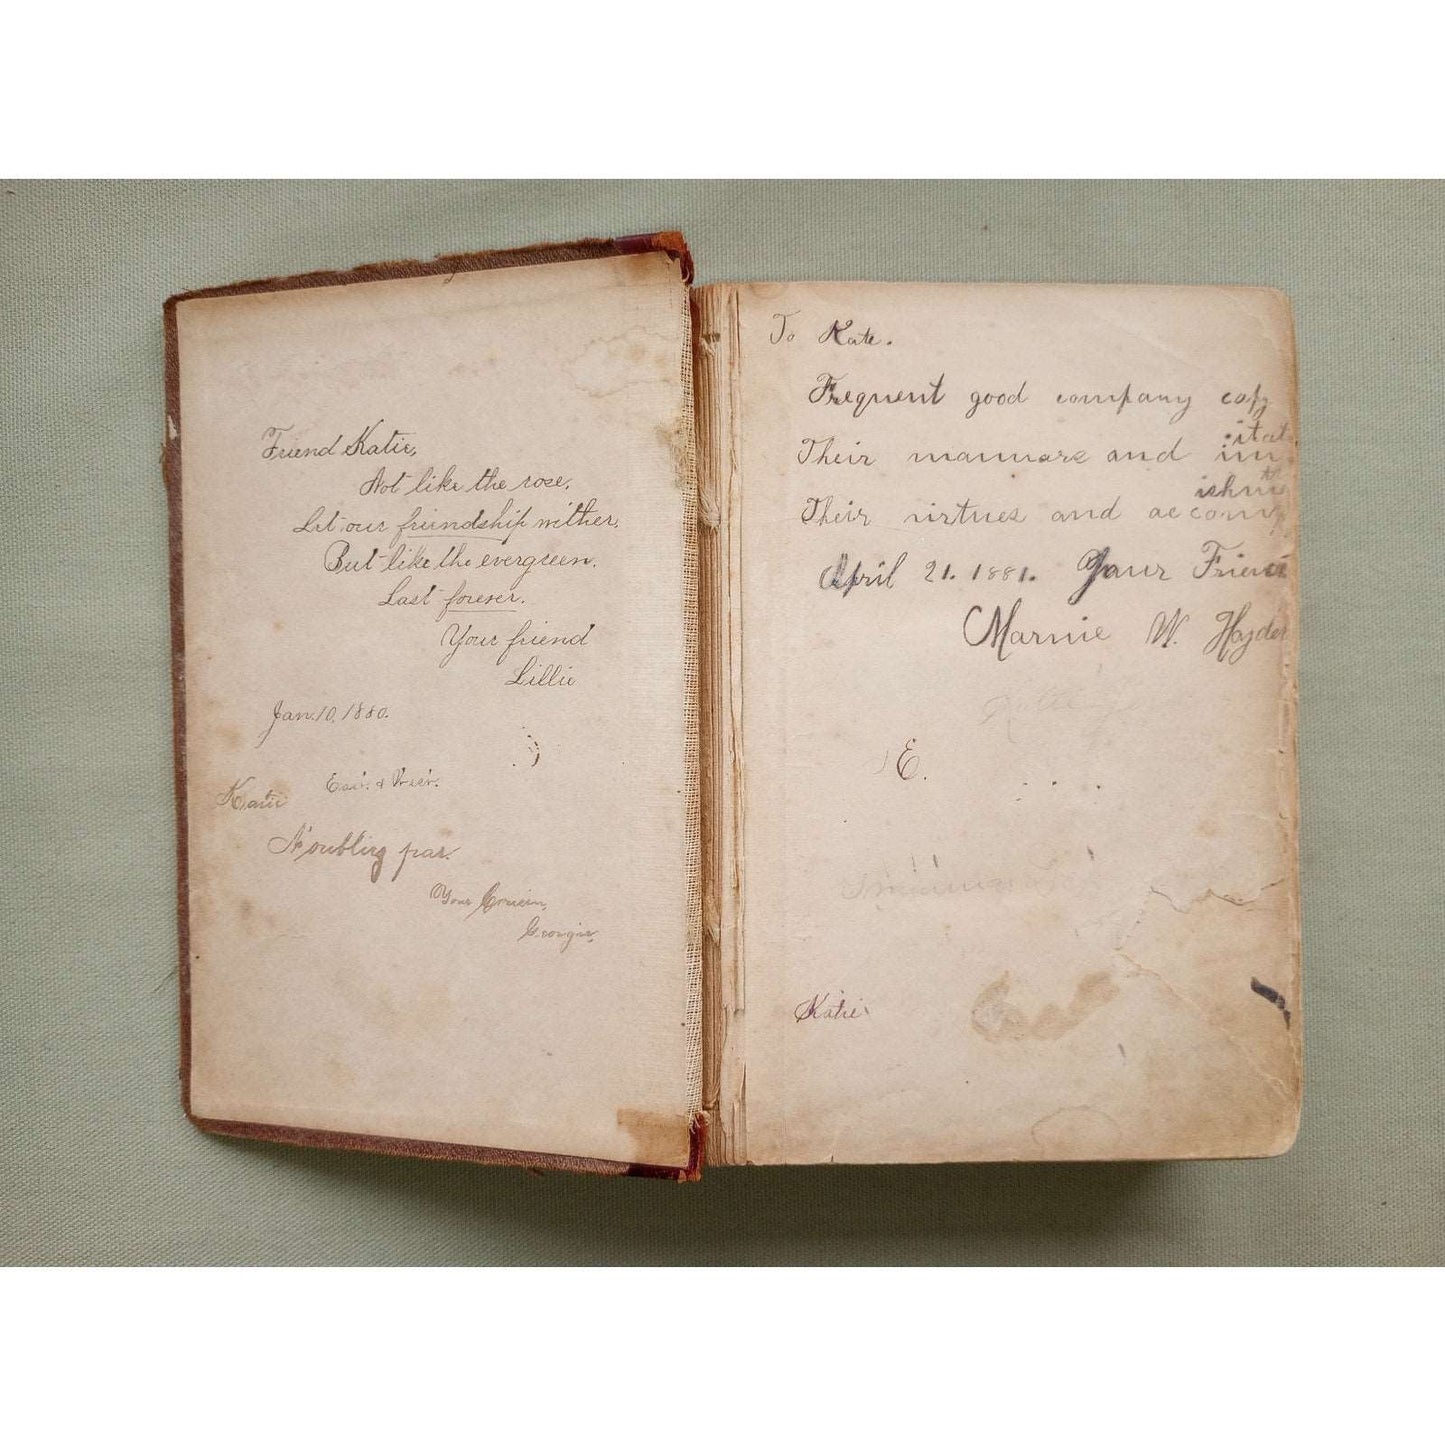 Friend Katie,
Not like the rose,
Let our friendship wither,
But like the evergreen,
Last forever.
Your friend
Lillie
Jan. 10, 1880.
Katie
N'oublier pas.
Your Cousin,
Georgie
To Kate.
Frequent good company copy
itat
Their mannars and im
ishm
Their virtues and accomp
April 21. 1881. Your Friend
Marnie W. Hayden
E.
Katie